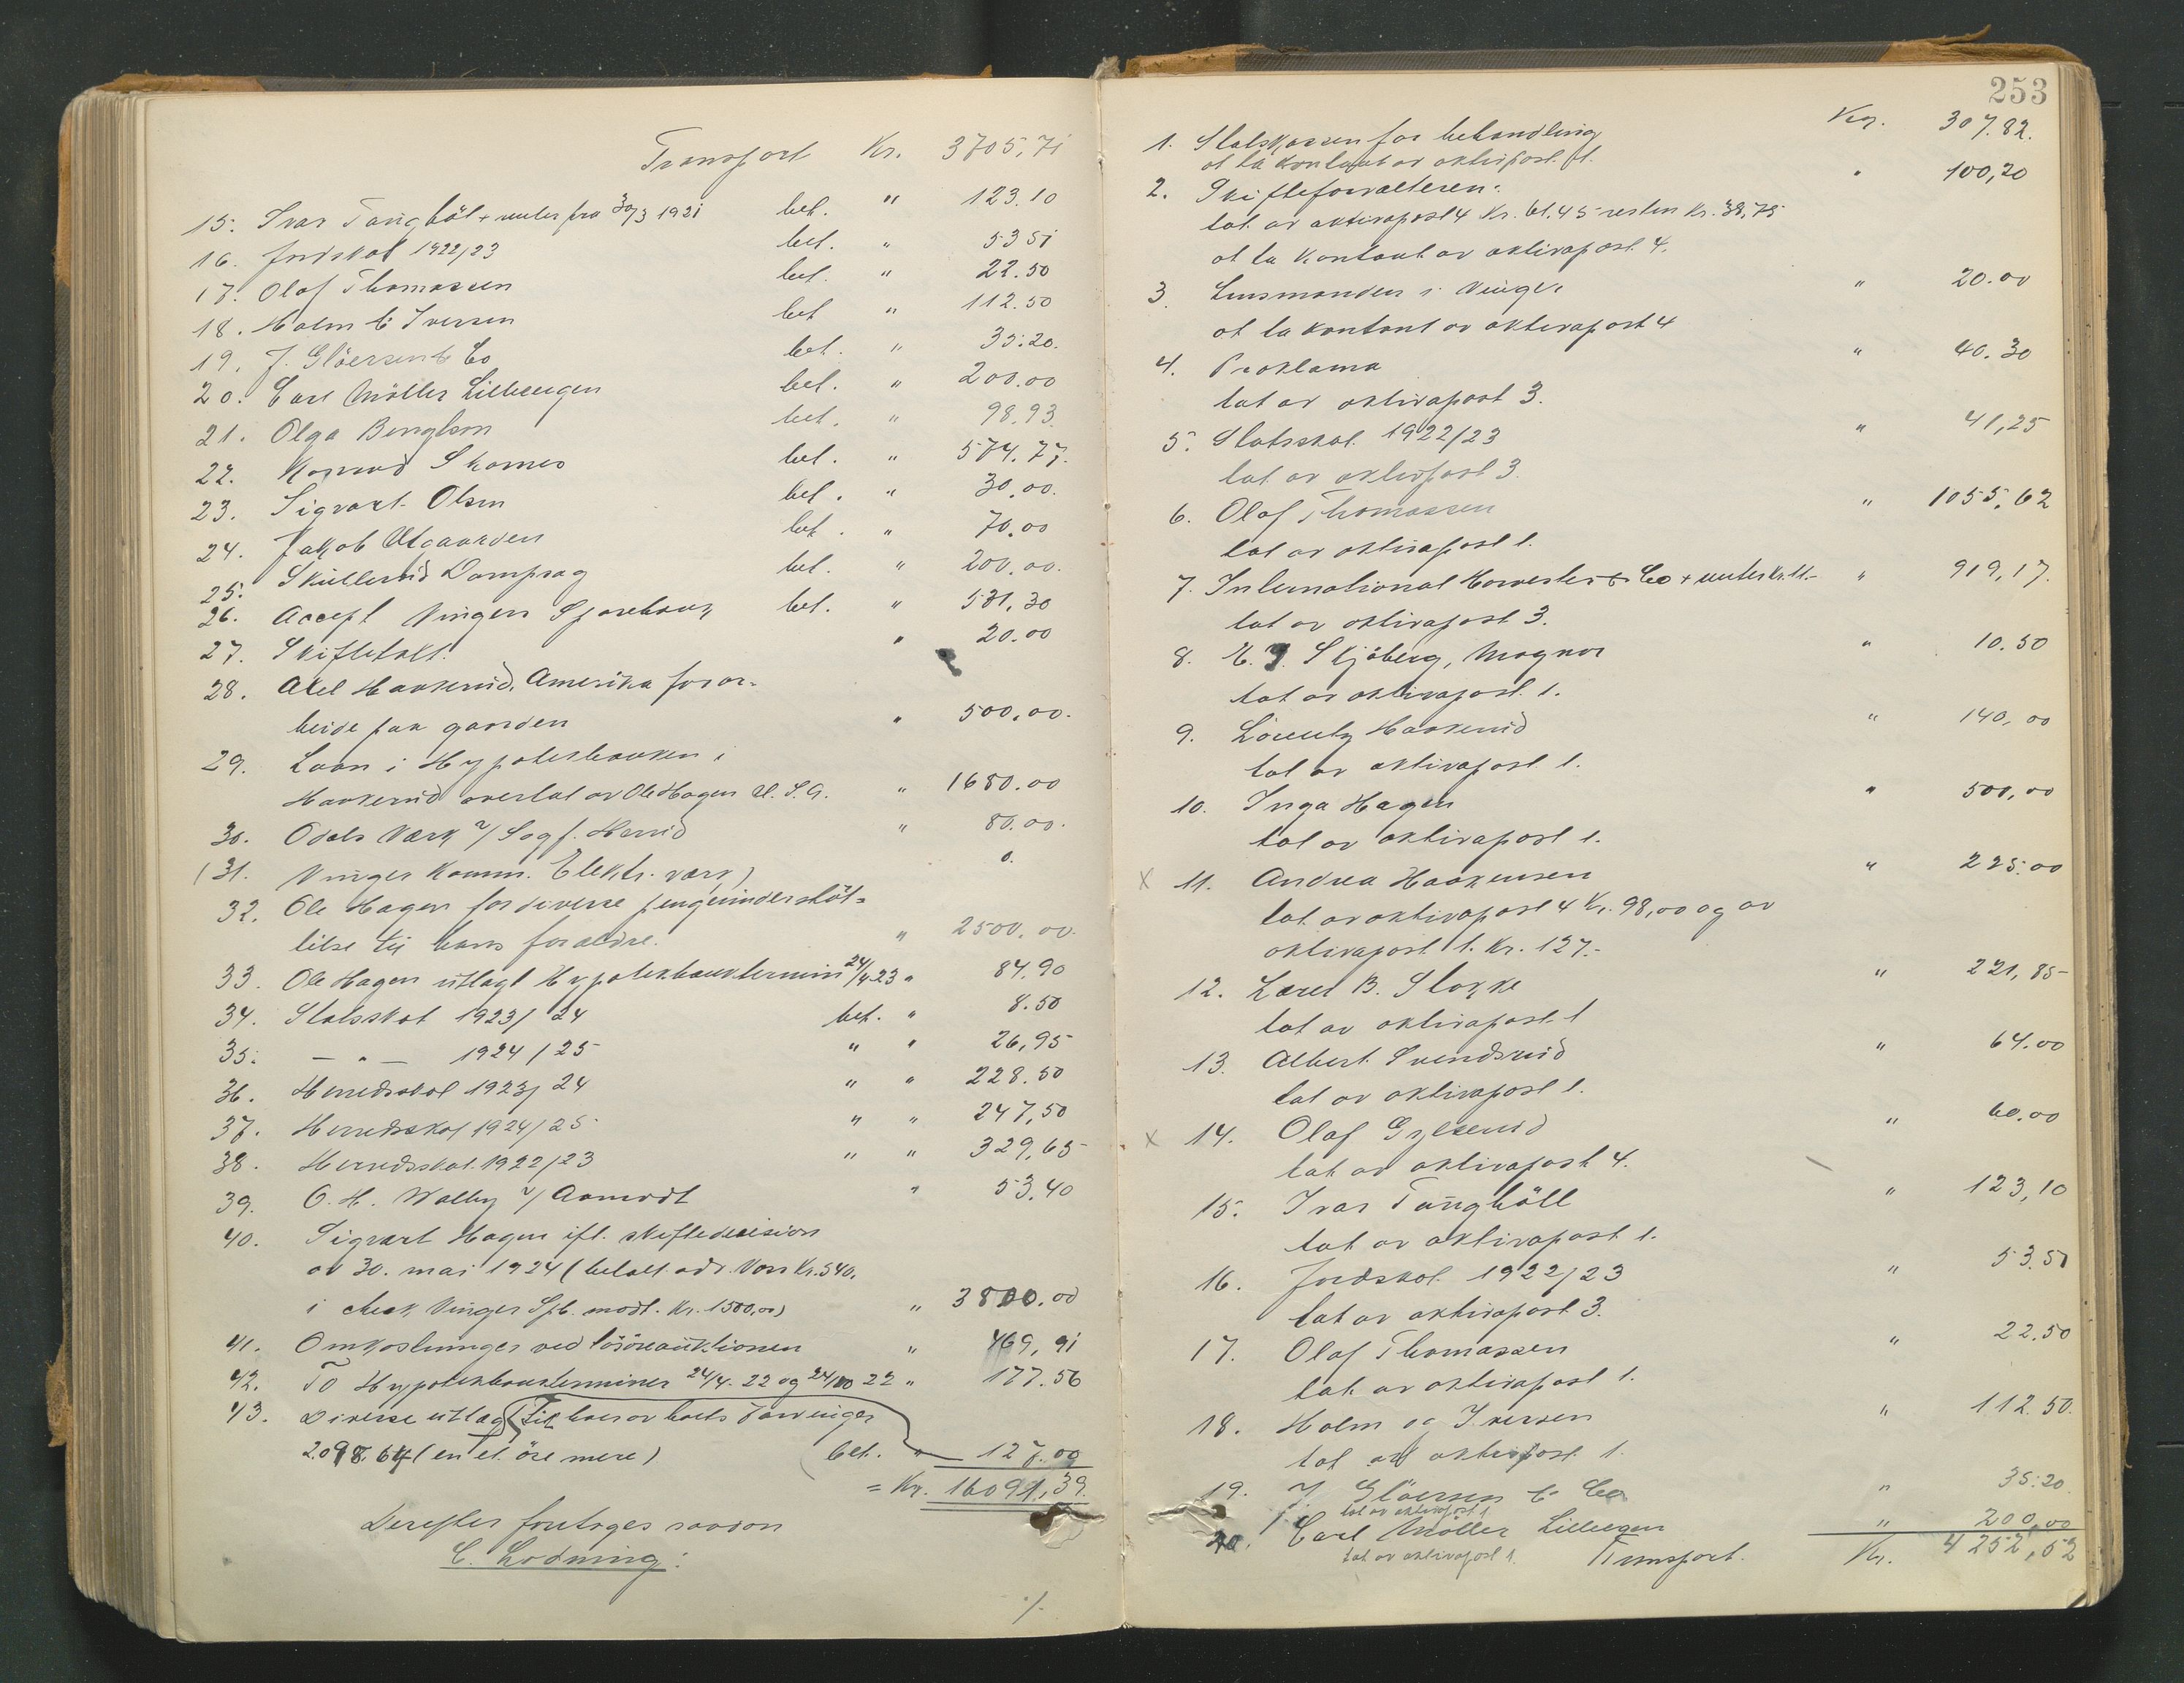 Transport Kr. 3705,71
15. Ivar Tangböl + renter fra 30/3 1921 bet. " 123.10
16. Jordskat 1922/23 bet. " 53 51
17. Olaf Thomassen bet. " 22.50
18. Holm & Iversen bet " 112.50
19. J. Glöersen & Co bet. " 35.20.
20. Carl Möller Lilleengen bet. " 200.00
21. Olga Bengtson bet. " 98.93
22. Konrad Skarnes bet. " 574.77.
23. Sigvart Olsen bet. " 30.00.
24. Jakob Utgaarden bet. " 70.00
25. Skullerud Dampsag bet. " 200.00.
26. Accept Vinger Sparebank bet. " 531.30
27. Skiftetakt. " 20.00
28. Axel Haakerud, Amerika for ar-
beide paa gaarden " 500.00.
29. Laan i Hypotekbanken i
Haakerud overtat av Ole Hagen " 1680.00
30. Odals Værk v/ Sagf. Herud " 80.00.
(31. Vinger Komm. Elektr. værk) 0.
32. Ole Hagen for diverse pengeunderstöt-
telse til hans forældre. " 2500.00.
33. Ole Hagen utlagt Hypotekbanktermin 24/4 23 " 84.90
34. Statsskat 1923/24 bet. " 8.50
35. — " — 1924/25 " " 26,95
36. Herredsskat 1923/24 " " 228.50
37. Herredsskat 1924/25 " " 247,50
38. Herredsskat 1922/23 " " 329,65
39. O. H. Walby v/ Aamodt " 53.40
40. Sigvart Hagen ifl. skiftedecision
av 30. mai 1924 (betalt adv. Kr. 540,
i check Vinger Spb. modt. Kr. 1500,00) " 3800.00
41. Omkostninger ved lösöreauktionen " 469,91
42. To Hypotekbankterminer 24/4. 22 og 24/10 22 " 177.56
43. Diverse utlæg til
2.098.64 (en el. öre mere) bet. " 127.00
= Kr. 16091,39.
Derefter foretages saadan
C. Lodning:
./.
253
1. Statskassen for behandling Kr. 307.82.
at ta kontant av aktivpost 1.
2. Skifteforvalteren. " 100,20
tat av aktivapost 4 Kr. 61.45 resten Kr. 38,75
at ta kontant av aktivapost 4.
3. Lensmanden i Vinger " 20.00
at ta kontant av aktivapost 4
4. Proklama " 40.30
tat av aktivapost 3.
5. Statsskat 1922/23 " 41,25
tat av aktivpost 3.
6. Olaf Thomassen " 1055,62
tat av aktivapost 1.
7. International Harvester & Co + renter kr. 11.- " 919,17.
tat av aktivapost 3.
8. Skjöberg, Magnor " 10.50
tat av aktivapost 1.
9. Lorentz Haakerud " 140,00
tat av aktivapost 1.
10. Inga Hagen " 500,00
tat av aktivapost 1.
x 11. Andrea Haakensen " 225.00
tat av aktivapost 4 Kr. 98,00 og av
aktivapost 1. Kr. 127.-
12. B. Slokke " 221,85
tat av aktivapost 1
13. Albert Svendsrud " 64.00
tat av aktivapost 1.
x 14. Olaf Gylterud " 60.00
tat av aktivapost 4.
15. Ivar Tangböll " 123,10
tat av aktivapost 1.
16. Jordskat 1922/23 " 53.51
tat av aktivapost 3.
17. Olaf Thomassen " 22.50
tat av aktivapost 1.
18. Holm og Iversen " 112.50.
tat av aktivpost 1.
19. J. Glöersen & Co " 35.20
tat av aktivapost 1
20. Carl Möller Lilleengen " 200,00
tat av aktivapost 1. Transport. Kr. 4252,52